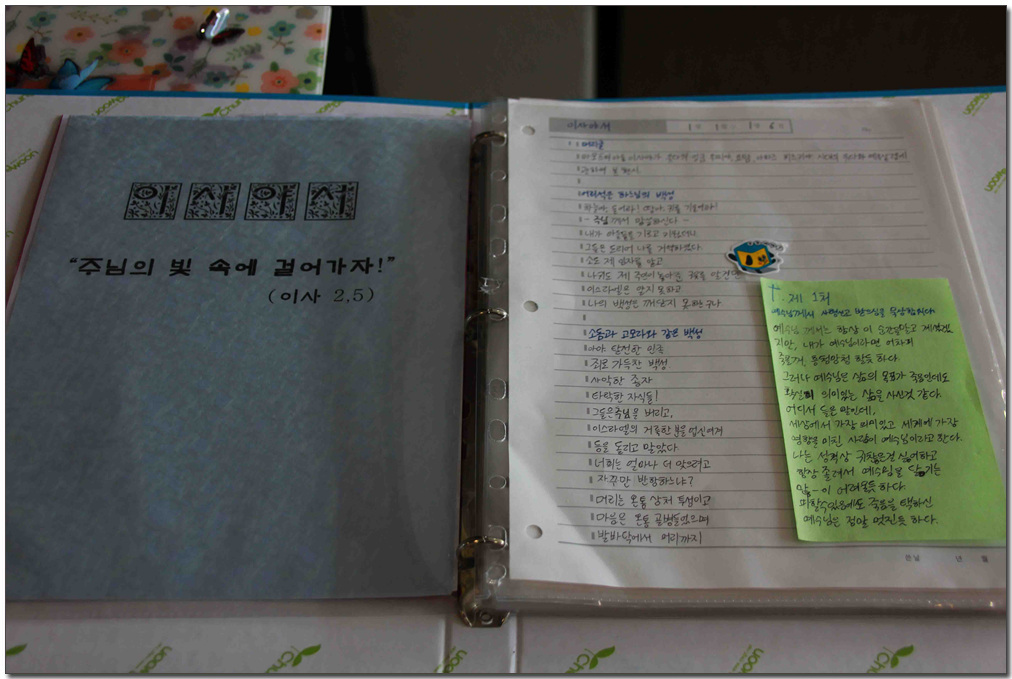 이사야서
“주님의 빛 속에 걸어가자!”
(이사 2,5)
이사야서
1 1 머리글
어리석은 하느님의 백성
- 주님께서 말씀하신다 -
내가 아들들을 기르고 키웠더니
그들은 도리어 나를 거역하였다.
소도 제 임자를 알고
나귀도 제 주인이 놓아준 구유를 알건만
이스라엘은 알지 못하고
나의 백성은 깨닫지 못하는구나
소돔과 고모라와 같은 백성
아아 탈선한 민족
죄로 가득찬 백성
사악한 종자
타락한 자식들!
그들은 주님을 버리고,
이스라엘의 거룩한 분을 업신여겨
등을 돌리고 말았다.
너희는 얼마나 더 맞으려고
자꾸만 반항하느냐?
머리는 온통 상처 투성이고
마음은 온통 골병들었으며
발바닥에서 머리까지
제 1처
예수님께서 사형선고 받으심을 묵상합시다
예수님께서는 항상 이 순간을 알고 계셨겠
지만, 내가 예수님이라면 어차피
죽을거, 흥청망청 할듯 하다.
그러나 예수님은 삶의 목표가 죽음인데도
확실히 의미있는 삶을 사신것 같다.
어디서 들은 말인데,
세상에서 가장 의미있고 세계에 가장
영향을 미친 사람이 예수님이라고 한다.
나는 성격상 귀찮은걸 싫어하고
항상 졸려서 예수님을 닮기는
어려울듯 하다.
피할수있음에도 죽음을 택하신
예수님은 정말 멋진듯 하다.
년 월